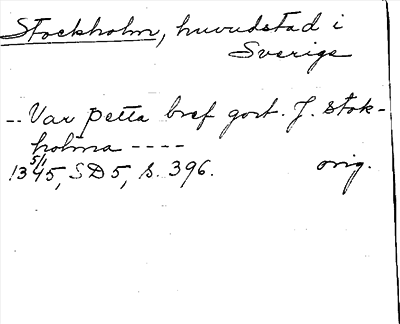 Stockholm, huvudstad i
Sverige
-- Var þetta bref gort. J. stok-
holma ----
13 5/1 45, SD5, s. 396. orig.